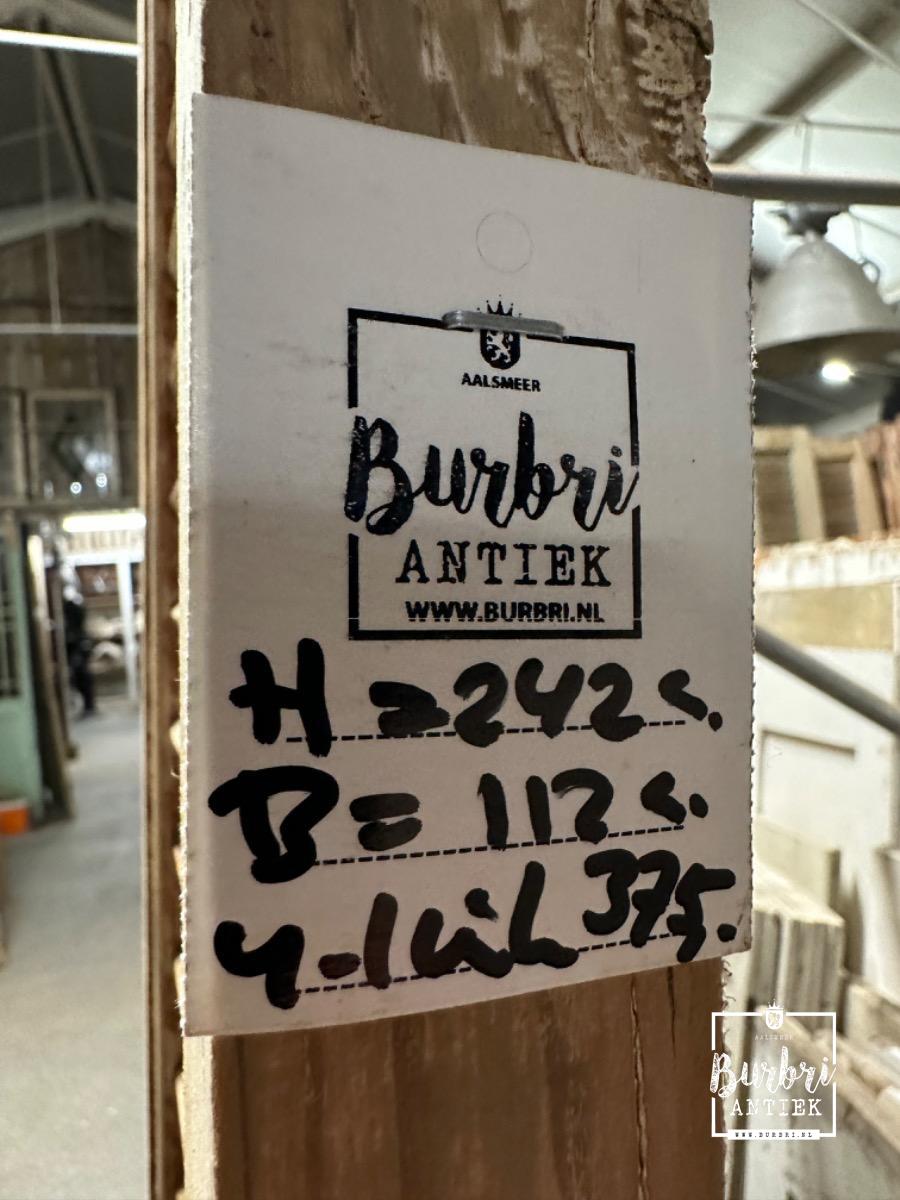 AALSMEER
Burbri
ANTIEK
WWW.BURBRI.NL
H = 242 c.
B = 112 c.
375.
AALSMEER
Burbri
ANTIEK
WWW.BURBRI.NL